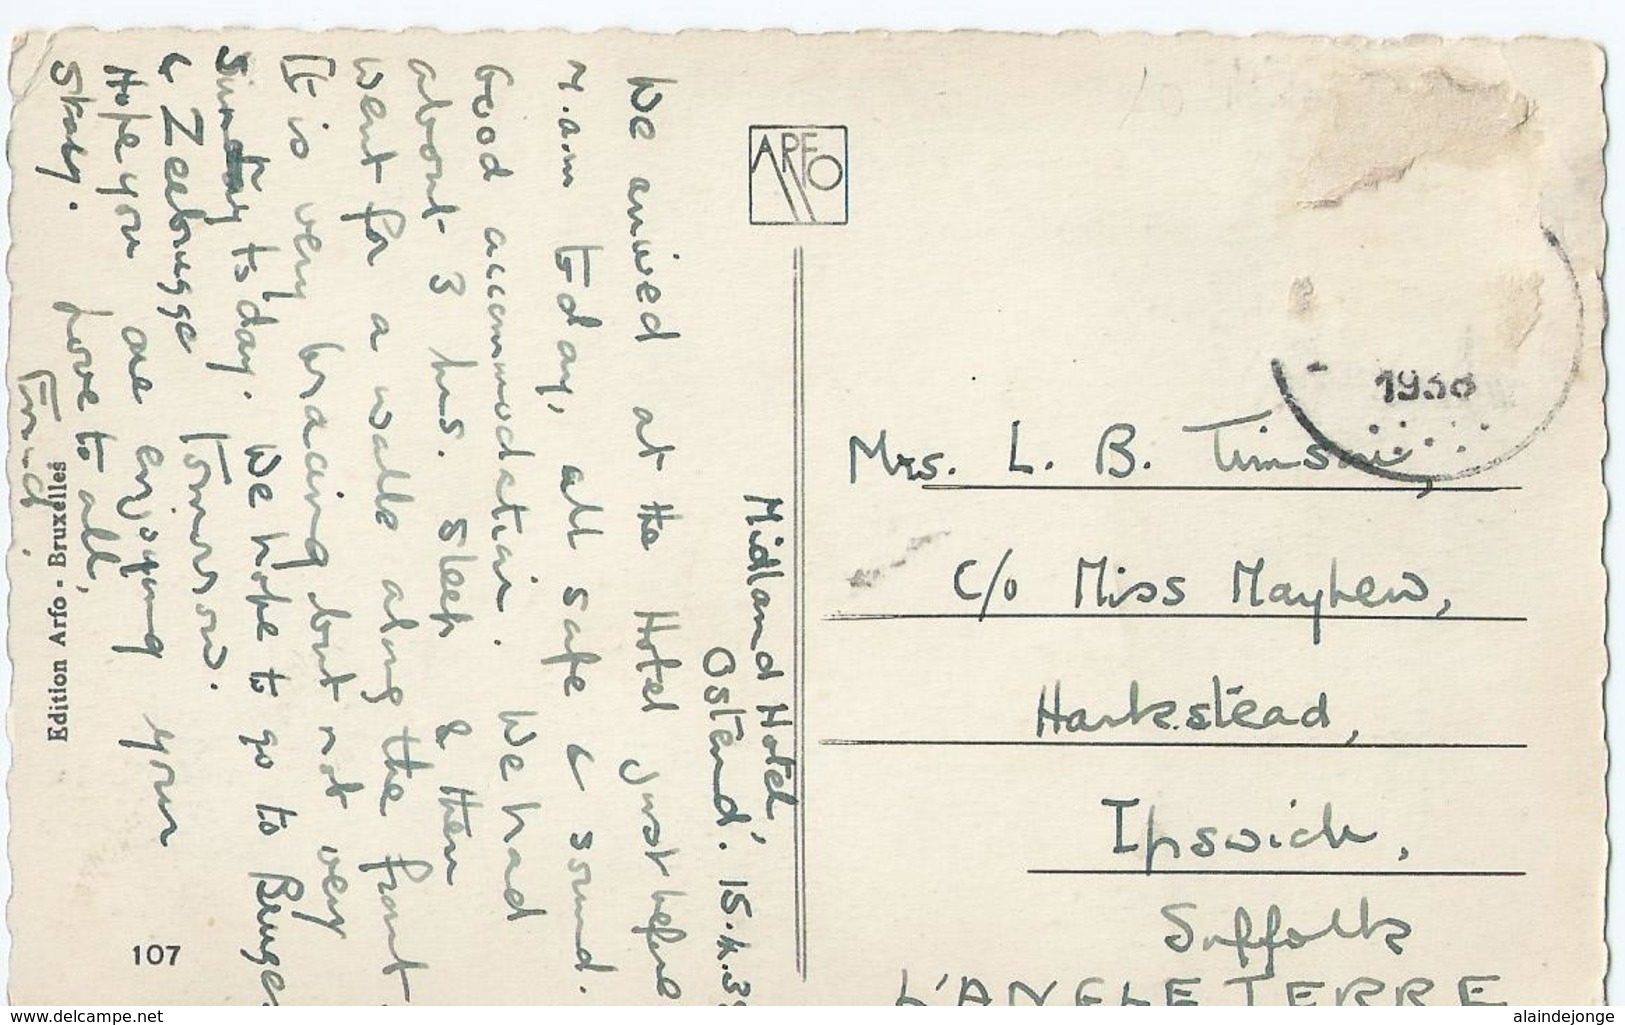 Midland Hotel,
Ostend. 15.4.3
We arrived at the Hotel just before
7.am today, all safe & sound.
Good accommodation. We had
about 3 hrs. sleep & then
went for a walk along the front.
It is very bracing, but not very
sunny today. We hope to go to Bruges
& Zeebrugge Tomorrow.
Hope you are enjoying your
stay. Love to all,
ARFO
Mrs. L. B.
c/o Miss Mayhew,
Harkstead,
Ipswich,
Suffolk
L'ANGLETERRE
Edition Arfo - Bruxelles
107
delcampe.net
alaindejonge